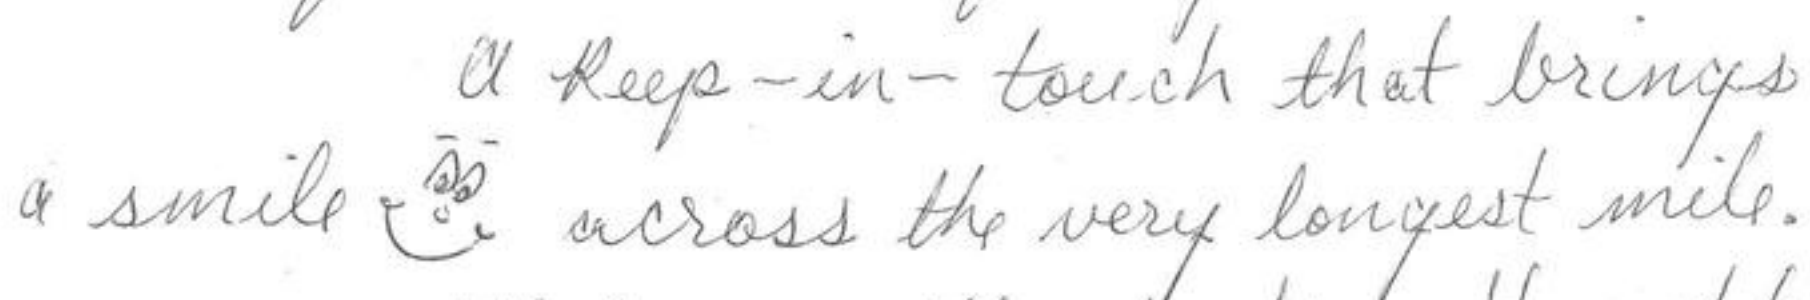 A keep-in-touch that brings
a smile across the very longest mile.